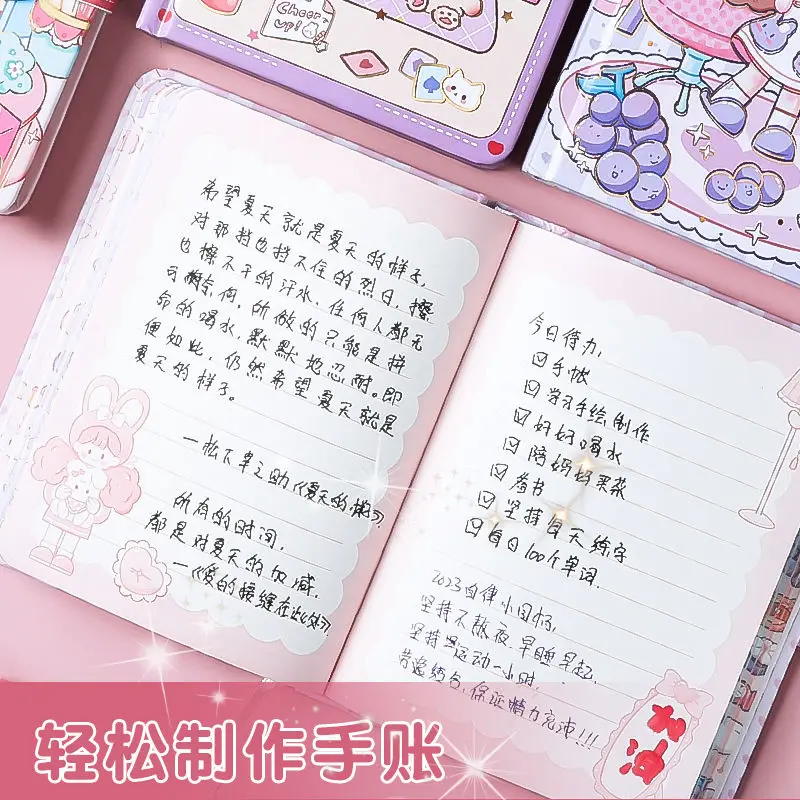 Cheer up!
希望夏天就是夏天的样子,
对那挡也挡不住的烈日,擦
也擦不干的汗水,任何人都无
可奈何,所做的只能是拼
命的喝水,默默地忍耐。即
便如此,仍然希望夏天就是
夏天的样子。
—松下幸之助《夏天的样》
所有的时间,
都是对夏天的
—《爱的接缝在此处》
今日待办,
☑手帐
☑学习手绘制作
☑好好喝水
☑陪妈妈买菜
☑看书
☑坚持每天练字
☑每日100个单词.
2023自律小目标,
坚持不熬夜.早睡早起,
坚持运动一小时.
劳逸结合,保证精力充沛!!!
加油
轻松制作手账